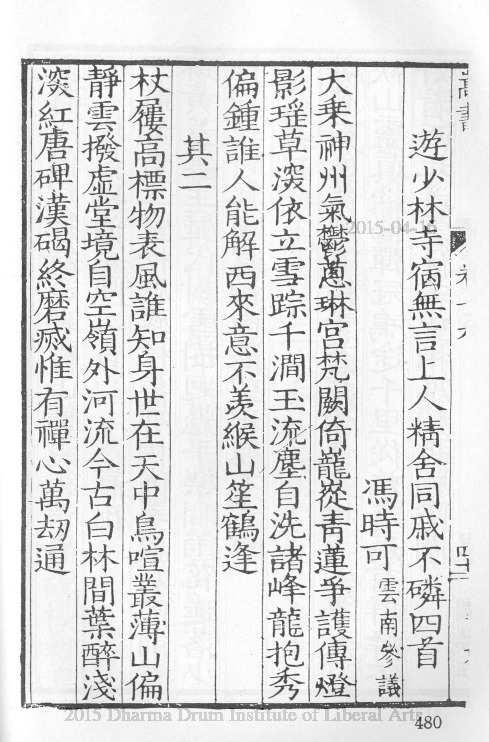 遊少林寺宿無言上人精舍同戚不磷四首
馮時可 雲南參議
大乗神州氣鬱蔥琳宮梵闕倚巃嵸青蓮爭護傳燈
影瑶草深依立雪踪千澗玉流塵自洗諸峰龍抱秀
偏鍾誰人能解西來意不羨緱山笙鶴逢
其二
杖屨高標物表風誰知身世在天中鳥喧叢薄山偏
靜雲撥虛堂境自空嶺外河流今古白林間葉醉淺
深紅唐碑漢碣終磨滅惟有禪心萬刼通
480
2015 Dharma Drum Institute of Liberal Arts